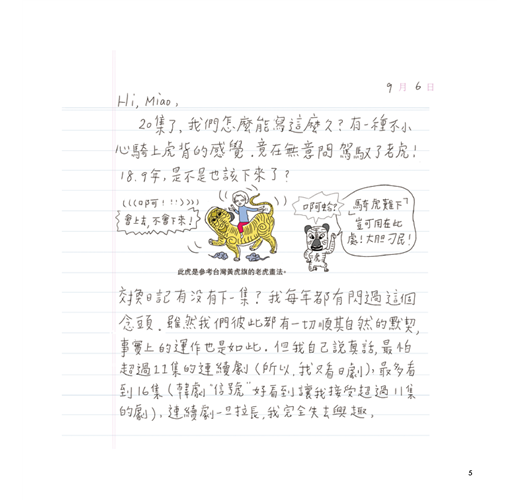 9月6日
Hi, Miao,
20集了，我們怎麼能寫這麼久？有一種不小
心騎上虎背的感覺，竟在無意間駕馭了老虎！
18.9年，是不是也該下來了？
(((叩叩！！))))
會上去，不會下來！
叩啊蛤？
「騎虎難下」
豈可用在此
處！大胆刁民！
此虎是參考台灣黃虎旗的老虎畫法。
交換日記有沒有下一集？我每年都有閃過這個
念頭。雖然我們彼此都有一切順其自然的默契，
事實上的運作也是如此。但我自己說真話，最怕
超過11集的連續劇（所以，我只看日劇），最多看
到16集（韓劇“信號”好看到讓我接受超過11集
的劇），連續劇一旦拉長，我完全失去興趣。
5